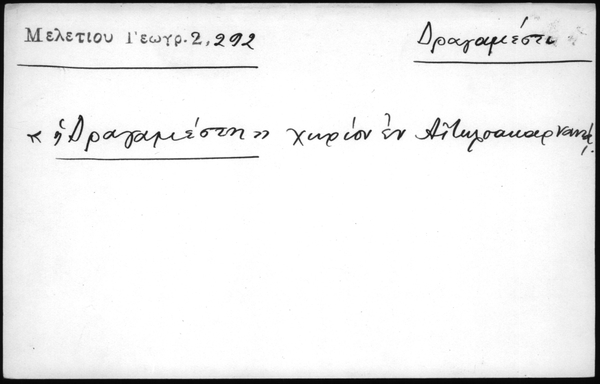 Μελετιου Γεωγρ. 2, 292
Δραγαμέστι
« ἡ Δραγαμέστη » χωρίον ἐν Αἰτωλοακαρνανίᾳ.